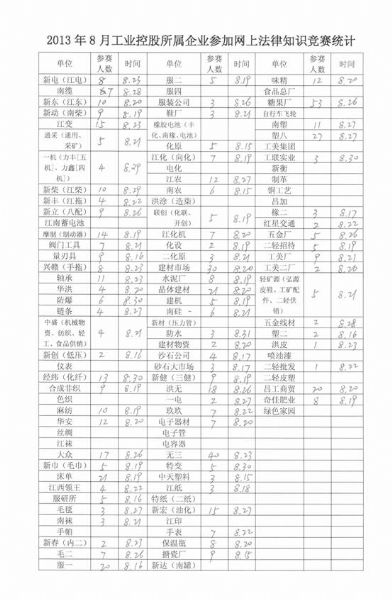 2013年8月工业控股所属企业参加网上法律知识竞赛统计
单位 参赛人数 时间 单位 参赛人数 时间 单位 参赛人数 时间
新电（江电） 8 8.23 服二 5 8.19 味精 12 8.20
南缆 8.28 服四 食品总厂
新东（江东） 10 8.20 服装公司 3 8.26 糖果厂 8.26
新动（南柴） 9 8.19 鞋厂 3 8.21 自行车飞轮
江变 15 8.23 橡胶电池（丰化、南橡、电池） 南塑 11 8.27
通采（通用、采矿） 5 8.21 塑八 27 8.27
化原 5 8.15 工美集团
一机（力丰[五机]、力鑫[四机]） 4 8.29 江化（向化） 7 8.19 工联实业 3 8.30
电化 新衡
江农 12 8.27 制革
新柴（江柴） 10 8.29 南农 6 8.15 铜工艺
新丰（江拖） 4 8.22 洪涂（造漆） 吕加
新立（八配） 9 8.26 联创（化联、开创） 5 8.19 橡二 3 8.17
江南蓄电池 红星交通 2 8.22
摩擦（制动器） 14 8.19 江化机 7 8.20 五金厂 5 8.26
阀门工具 7 8.21 化设 2 8.19 二轻招待 5 8.19
量刃具 9 8.16 二化原 3 8.21 工美厂 9 8.21
兴赣（手拖） 8 8.23 建材市场 30 8.20 工美二厂 2 8.20
轴承 11 8.23 水泥厂 8 8.19 轻矿源（弘源皮鞋、工矿配件、二轻供销） 5 8.21
华洪 4 8.20 晶体建材 21 8.20
防爆 6 8.30 建机 5 8.19
链条 4 8.23 南硅 6 8.21
中盛（机械物资、纺织、轻工、食品供销） 4 8.21 新材（压力管） 五金线材 2 8.28
防水 3 8.31 塑二 2 8.16
建材物资 2 8.20 洪皮 1 8.23
新创（低压） 2 8.16 沙石公司 4 8.17 喷油漆
仪表 砂石大市场 3 8.17 二轻批发 1 8.22
经纬（化纤） 13 8.30 新健（三健） 9 8.19 二轻皮塑
合成非织 9 8.19 洪无 18 8.26 昌工商贸 20 8.20
色织 一电 2 8.27 奇佳肥业 8 8.19
麻纺 10 8.19 玖玖 7 8.22 绿色家园
华安 12 8.20 电子器材 7 8.20
丝绸 电子管
江袜 电容器
大众 17 8.26 无三 40 8.23
新巾（毛巾） 5 8.19 特变 5 8.30
床单 21 8.19 中天塑料 3 8.15
江西领王 4 8.22 江纸 3 8.18
服研所 5 8.16 特纸（二纸）
毛毯 3 8.27 新宏（油化） 15 8.23
南袜 3 8.21 江印
手帕 手表 7 8.22
新春（内二） 2 8.23 保温瓶 8 8.20
毛二 7 8.26 搪瓷厂 9 8.15
服一 20 8.16 新达（南罐）